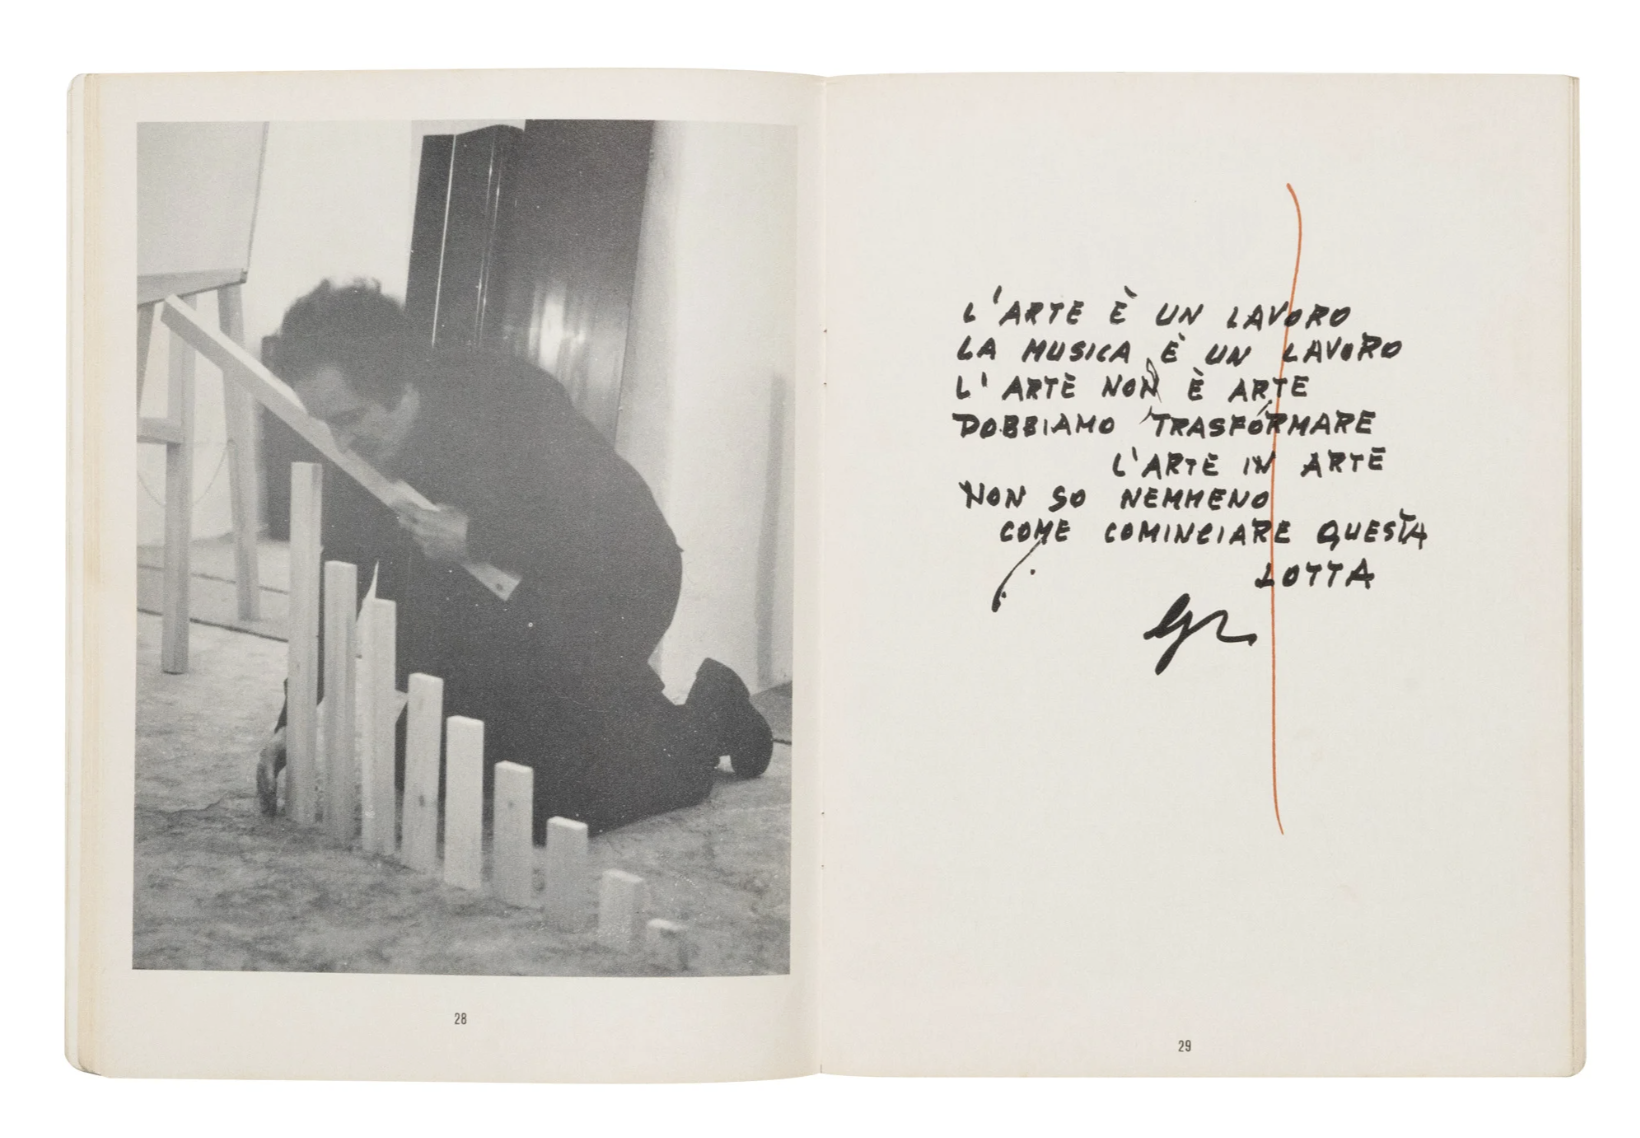 L'ARTE È UN LAVORO
LA MUSICA È UN LAVORO
L'ARTE NON È ARTE
DOBBIAMO TRASFORMARE
L'ARTE IN ARTE
NON SO NEMMENO
COME COMINCIARE QUESTA
LOTTA
28
29